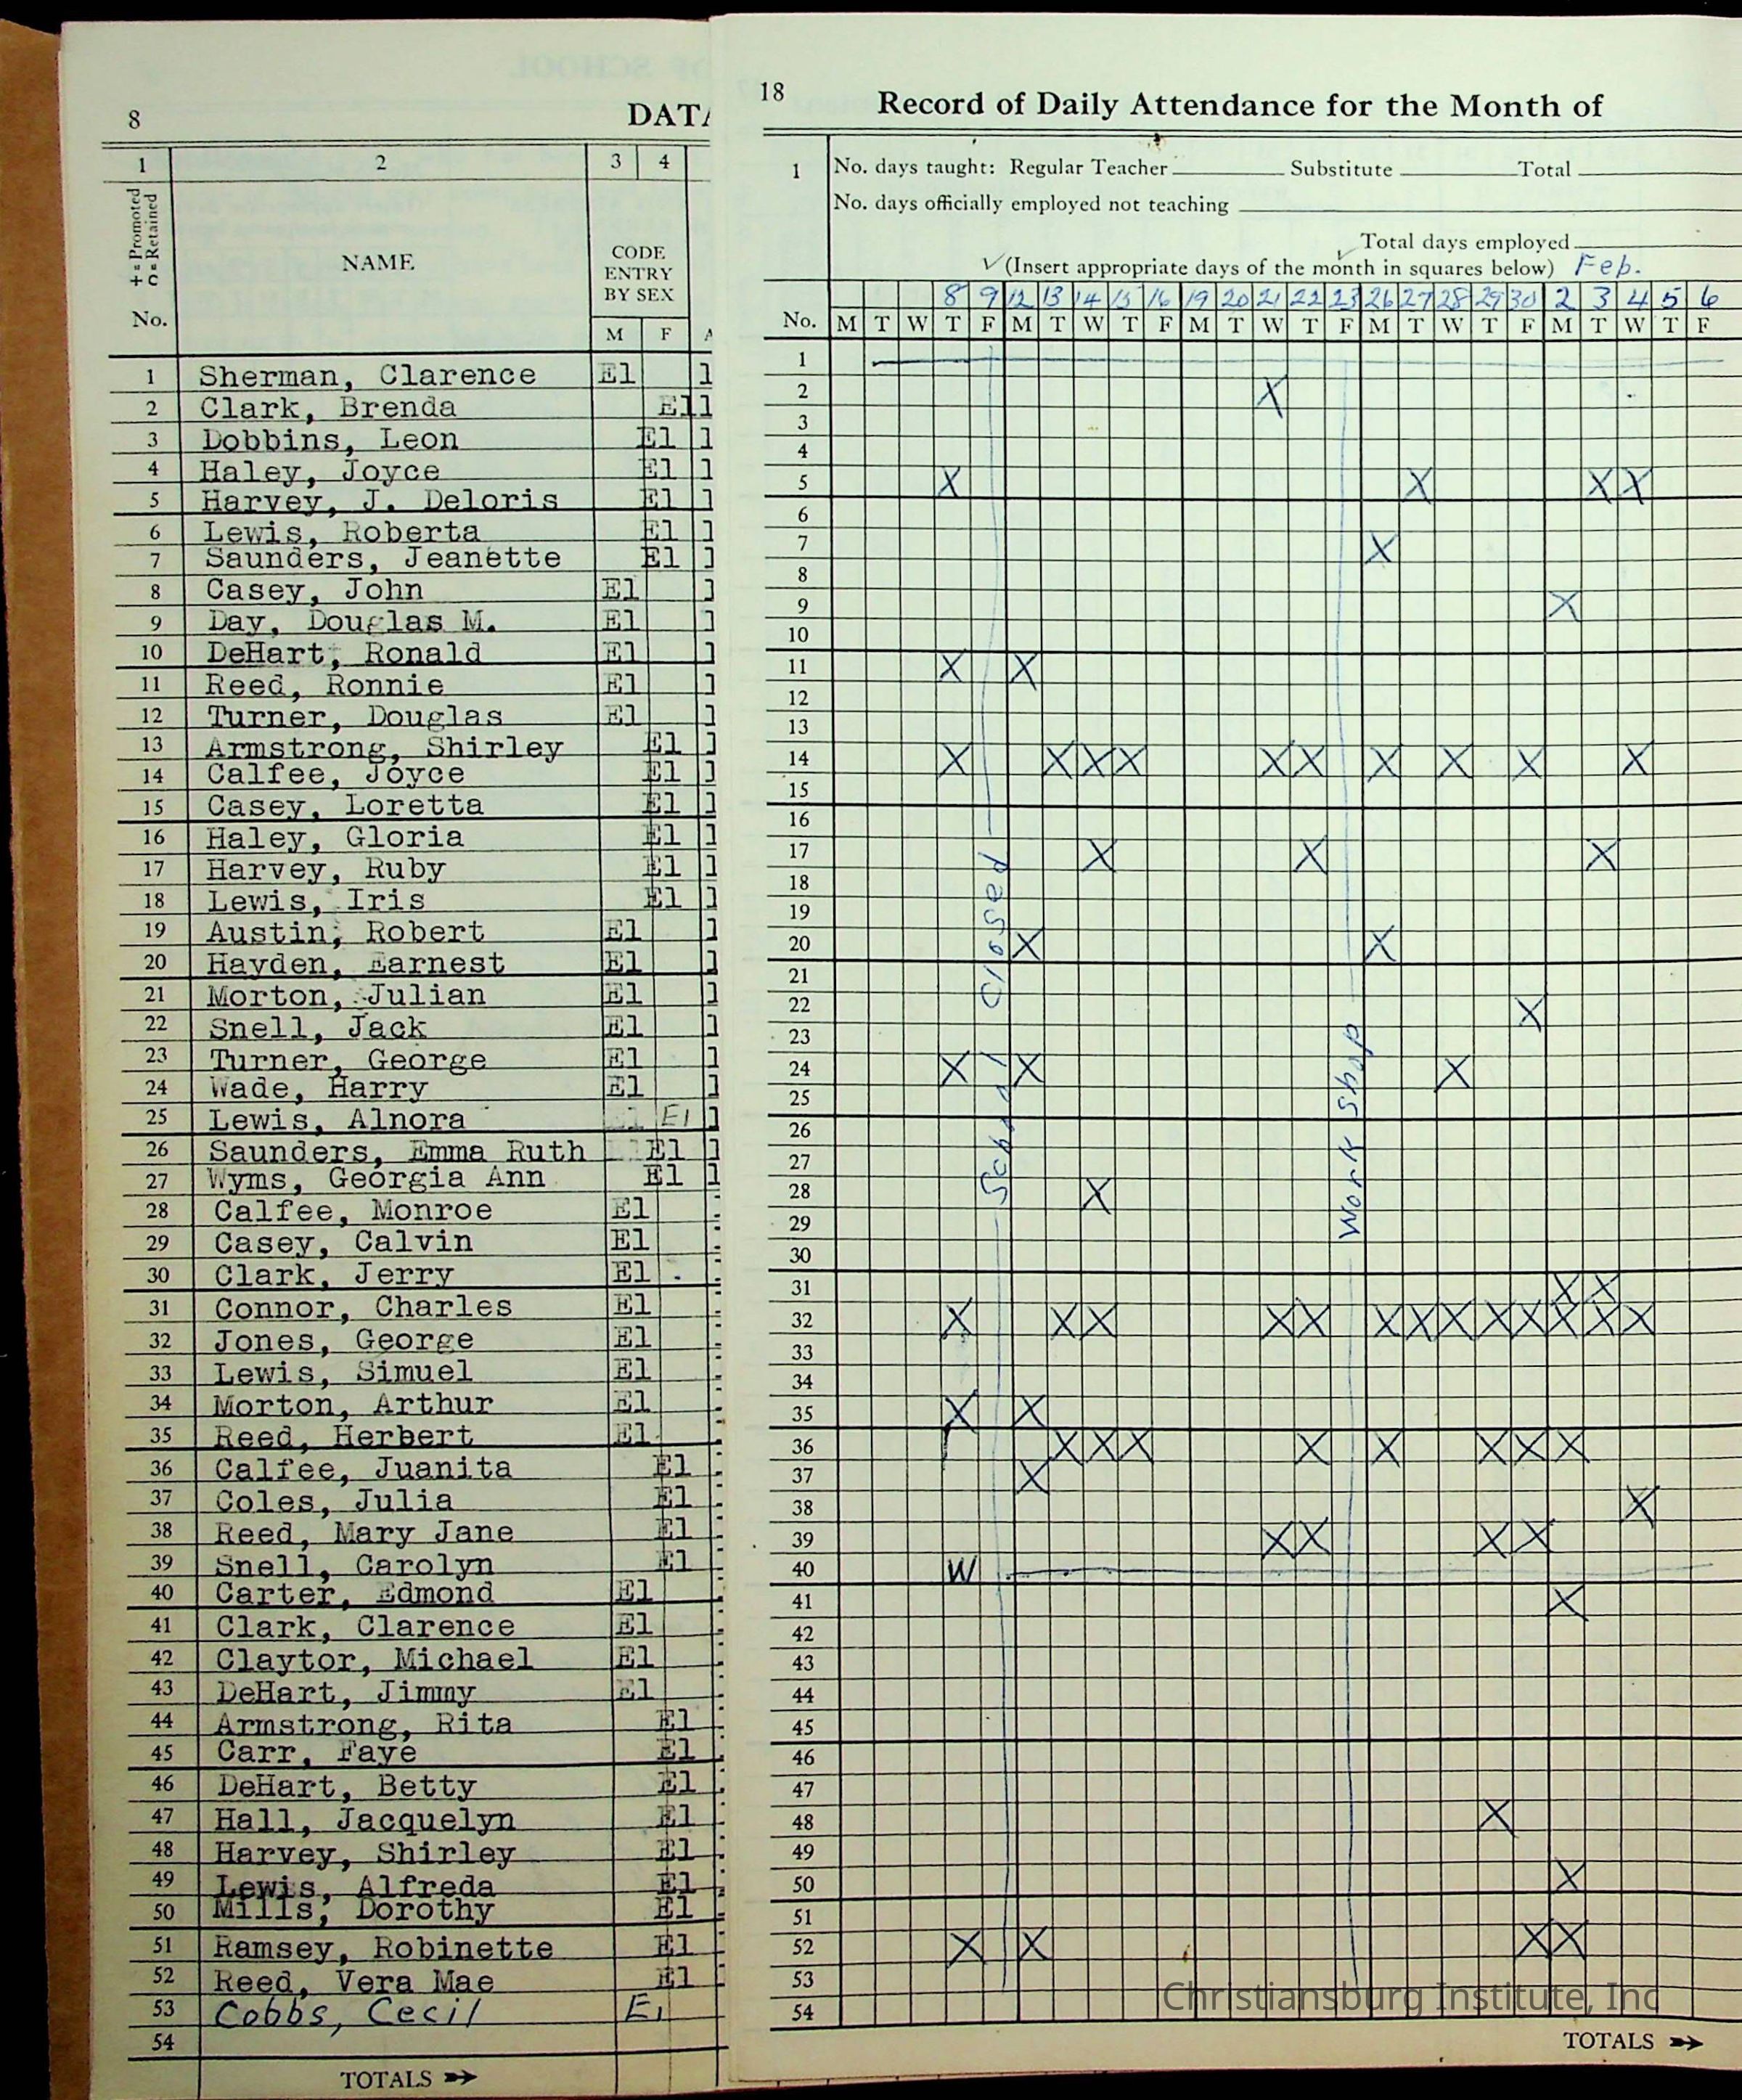 8
DATA
1 2 3 4
+ = Promoted
O = Retained
No.
NAME
CODE
ENTRY
BY SEX
M F
1 Sherman, Clarence El
2 Clark, Brenda El
3 Dobbins, Leon El
4 Haley, Joyce El
5 Harvey, J. Deloris El
6 Lewis, Roberta El
7 Saunders, Jeanette El
8 Casey, John El
9 Day, Douglas M. El
10 DeHart, Ronald El
11 Reed, Ronnie El
12 Turner, Douglas El
13 Armstrong, Shirley El
14 Calfee, Joyce El
15 Casey, Loretta El
16 Haley, Gloria El
17 Harvey, Ruby El
18 Lewis, Iris El
19 Austin, Robert El
20 Hayden, Earnest El
21 Morton, Julian El
22 Snell, Jack El
23 Turner, George El
24 Wade, Harry El
25 Lewis, Alnora El
26 Saunders, Emma Ruth El
27 Wyms, Georgia Ann El
28 Calfee, Monroe El
29 Casey, Calvin El
30 Clark, Jerry El
31 Connor, Charles El
32 Jones, George El
33 Lewis, Simuel El
34 Morton, Arthur El
35 Reed, Herbert El
36 Calfee, Juanita El
37 Coles, Julia El
38 Reed, Mary Jane El
39 Snell, Carolyn El
40 Carter, Edmond El
41 Clark, Clarence El
42 Claytor, Michael El
43 DeHart, Jimmy El
44 Armstrong, Rita El
45 Carr, Faye El
46 DeHart, Betty El
47 Hall, Jacquelyn El
48 Harvey, Shirley El
49 Lewis, Alfreda El
50 Mills, Dorothy El
51 Ramsey, Robinette El
52 Reed, Vera Mae El
53 Cobbs, Cecil El
54
TOTALS
18
Record of Daily Attendance for the Month of
1 No. days taught: Regular Teacher Substitute Total
No. days officially employed not teaching
Total days employed
(Insert appropriate days of the month in squares below) Feb.
8 9 12 13 14 15 16 19 20 21 22 23 26 27 28 29 30 2 3 4 5 6
No. M T W T F M T W T F M T W T F M T W T F M T W T F
1
2 X
3
4
5 X X X X
6
7 X
8
9 X
10
11 X X
12
13
14 X X X X X X X X X X
15
16
17 X X X
18
19
20 X X
21
22 X
23
24 X X X
25
26
27
28 X
29
30
31 X X
32 X X X X X X X X X X X X X
33
34
35 X X
36 X X X X X X X X
37 X
38 X
39 X X X X
40 W
41 X
42
43
44
45
46
47
48 X
49
50 X
51
52 X X X X
53
54
School Closed
Work Shop
TOTALS
Christiansburg Institute, Inc